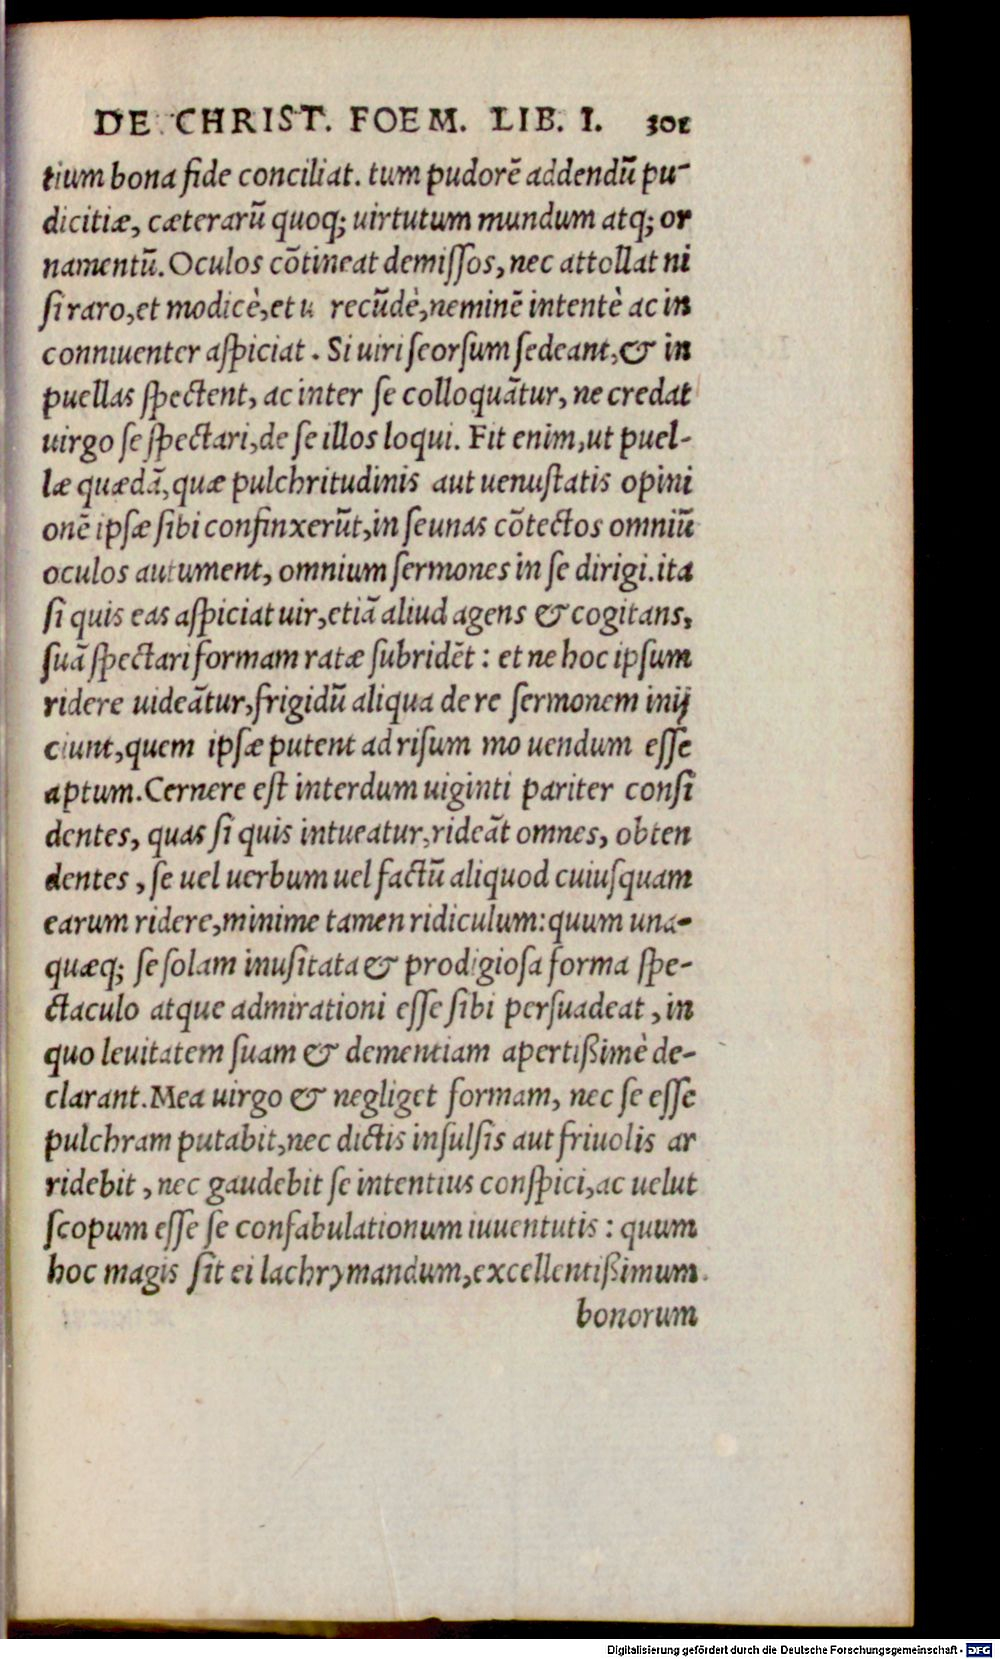 DE CHRIST. FOEM. LIB. I. 301
tium bona fide conciliat. tum pudorẽ addendũ pu-
dicitiæ, cæterarũ quoq; uirtutum mundum atq; or
namentũ. Oculos cõtineat demissos, nec attollat ni
si raro, et modicè, et u recũdè, neminẽ intentè ac in
conniuenter aspiciat. Si uiri seorsum sedeant, & in
puellas spectent, ac inter se colloquãtur, ne credat
uirgo se spectari, de se illos loqui. Fit enim, ut puel-
læ quædã, quæ pulchritudinis aut uenustatis opini
onẽ ipsæ sibi confinxerũt, in se unas cõtectos omniũ
oculos autument, omnium sermones in se dirigi. ita
si quis eas aspiciat uir, etiã aliud agens & cogitans,
suã spectari formam ratæ subridẽt: et ne hoc ipsum
ridere uideãtur, frigidũ aliqua de re sermonem inij
ciunt, quem ipsæ putent ad risum mo uendum esse
aptum. Cernere est interdum uiginti pariter consi
dentes, quas si quis intueatur, rideãt omnes, obten
dentes, se uel uerbum uel factũ aliquod cuiusquam
earum ridere, minime tamen ridiculum: quum una-
quæq; se solam inusitata & prodigiosa forma spe-
ctaculo atque admirationi esse sibi persuadeat, in
quo leuitatem suam & dementiam apertißimè de-
clarant. Mea uirgo & negliget formam, nec se esse
pulchram putabit, nec dictis insulsis aut friuolis ar
ridebit, nec gaudebit se intentius conspici, ac uelut
scopum esse se confabulationum iuuentutis: quum
hoc magis sit ei lachrymandum, excellentißimum
bonorum
Digitalisierung gefördert durch die Deutsche Forschungsgemeinschaft - DFG